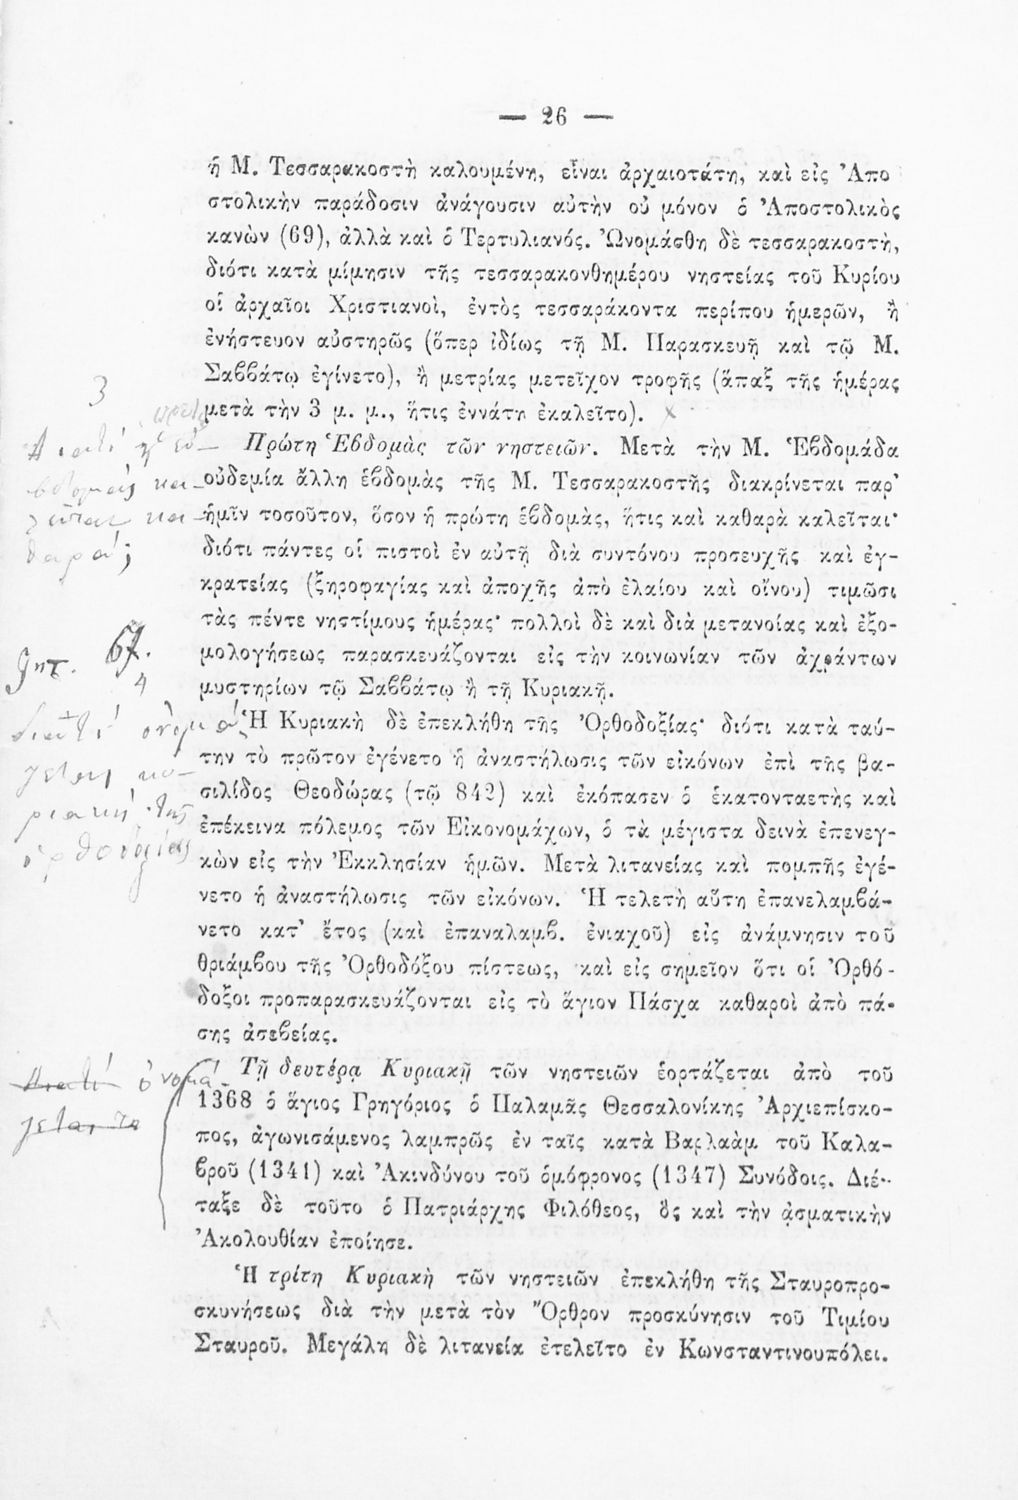 — 26 —
ἡ Μ. Τεσσαρακοστὴ καλουμένη, εἶναι ἀρχαιοτάτη, καὶ εἰς Ἀπο
στολικὴν παράδοσιν ἀνάγουσιν αὐτὴν οὐ μόνον ὁ Ἀποστολικὸς
κανὼν (69), ἀλλὰ καὶ ὁ Τερτυλιανός. Ὠνομάσθη δὲ τεσσαρακοστὴ,
διότι κατὰ μίμησιν τῆς τεσσαρακονθημέρου νηστείας τοῦ Κυρίου
οἱ ἀρχαῖοι Χριστιανοὶ, ἐντὸς τεσσαράκοντα περίπου ἡμερῶν, ἢ
ἐνήστευον αὐστηρῶς (ὅπερ ἰδίως τῇ Μ. Παρασκευῇ καὶ τῷ Μ.
Σαββάτῳ ἐγίνετο), ἢ μετρίας μετεῖχον τροφῆς (ἅπαξ τῆς ἡμέρας
μετὰ τὴν 3 μ. μ., ἥτις ἐννάτη ἐκαλεῖτο).
3
Πρώτη Ἑβδομὰς τῶν νηστειῶν. Μετὰ τὴν Μ. Ἑβδομάδα
οὐδεμία ἄλλη ἑβδομὰς τῆς Μ. Τεσσαρακοστῆς διακρίνεται παρ'
ἡμῖν τοσοῦτον, ὅσον ἡ πρώτη ἑβδομὰς, ἥτις καὶ καθαρὰ καλεῖται·
διότι πάντες οἱ πιστοὶ ἐν αὐτῇ διὰ συντόνου προσευχῆς καὶ ἐγ-
κρατείας (ξηροφαγίας καὶ ἀποχῆς ἀπὸ ἐλαίου καὶ οἴνου) τιμῶσι
τὰς πέντε νηστίμους ἡμέρας· πολλοὶ δὲ καὶ διὰ μετανοίας καὶ ἐξο-
μολογήσεως παρασκευάζονται εἰς τὴν κοινωνίαν τῶν ἀχράντων
μυστηρίων τῷ Σαββάτῳ ἢ τῇ Κυριακῇ.
θαρά;
ζητ.
4
διατί ὀνομά-
ζεται κυ-
ριακή τῆς
ὀρθοδοξίας
Ἡ Κυριακὴ δὲ ἐπεκλήθη τῆς Ὀρθοδοξίας· διότι κατὰ ταύ-
την τὸ πρῶτον ἐγένετο ἡ ἀναστήλωσις τῶν εἰκόνων ἐπὶ τῆς βα-
σιλίδος Θεοδώρας (τῷ 842) καὶ ἐκόπασεν ὁ ἑκατονταετὴς καὶ
ἐπέκεινα πόλεμος τῶν Εἰκονομάχων, ὁ τὰ μέγιστα δεινὰ ἐπενεγ-
κὼν εἰς τὴν Ἐκκλησίαν ἡμῶν. Μετὰ λιτανείας καὶ πομπῆς ἐγέ-
νετο ἡ ἀναστήλωσις τῶν εἰκόνων. Ἡ τελετὴ αὕτη ἐπανελαμβά-
νετο κατ' ἔτος (καὶ ἐπαναλαμβ. ἐνιαχοῦ) εἰς ἀνάμνησιν τοῦ
θριάμβου τῆς Ὀρθοδόξου πίστεως, καὶ εἰς σημεῖον ὅτι οἱ Ὀρθό-
δοξοι προπαρασκευάζονται εἰς τὸ ἅγιον Πάσχα καθαροὶ ἀπὸ πά-
σης ἀσεβείας.
Διατί ὀνομά-
ζεται το
Τῇ δευτέρᾳ Κυριακῇ τῶν νηστειῶν ἑορτάζεται ἀπὸ τοῦ
1368 ὁ ἅγιος Γρηγόριος ὁ Παλαμᾶς Θεσσαλονίκης Ἀρχιεπίσκο-
πος, ἀγωνισάμενος λαμπρῶς ἐν ταῖς κατὰ Βαρλαὰμ τοῦ Καλα-
βροῦ (1341) καὶ Ἀκινδύνου τοῦ ὁμόφρονος (1347) Συνόδοις. Διέ-
ταξε δὲ τοῦτο ὁ Πατριάρχης Φιλόθεος, ὃς καὶ τὴν ᾀσματικὴν
Ἀκολουθίαν ἐποίησε.
Ἡ τρίτη Κυριακὴ τῶν νηστειῶν ἐπεκλήθη τῆς Σταυροπρο-
σκυνήσεως διὰ τὴν μετὰ τὸν Ὄρθρον προσκύνησιν τοῦ Τιμίου
Σταυροῦ. Μεγάλη δὲ λιτανεία ἐτελεῖτο ἐν Κωνσταντινουπόλει.